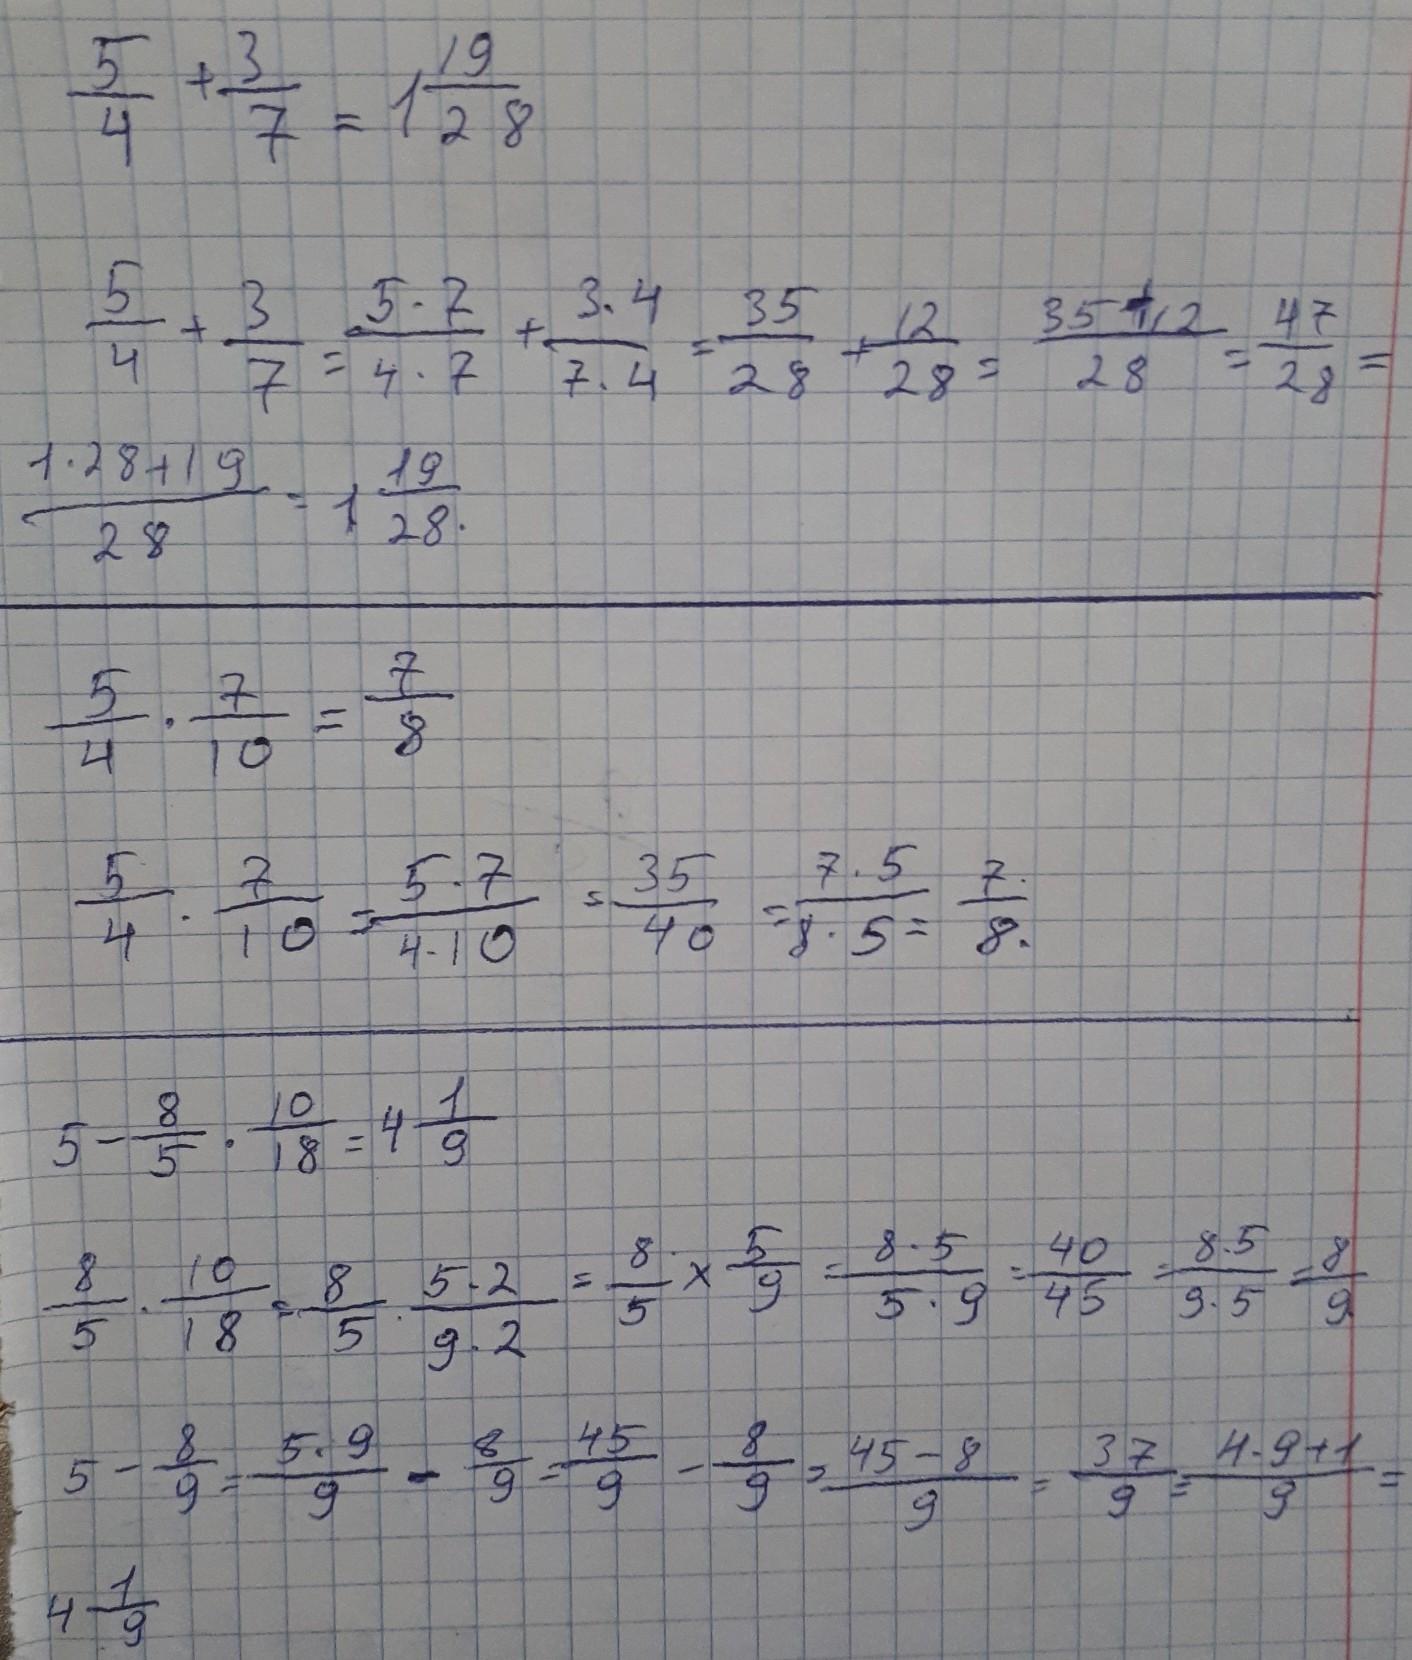 5/4 + 3/7 = 1 19/28
5/4 + 3/7 = 5·7/4·7 + 3·4/7·4 = 35/28 + 12/28 = 35+12/28 = 47/28 =
1·28+19/28 = 1 19/28.
5/4 · 7/10 = 7/8
5/4 · 7/10 = 5·7/4·10 = 35/40 = 7·5/8·5 = 7/8.
5 - 8/5 · 10/18 = 4 1/9
8/5 · 10/18 = 8/5 · 5·2/9·2 = 8/5 × 5/9 = 8·5/5·9 = 40/45 = 8·5/9·5 = 8/9
5 - 8/9 = 5·9/9 - 8/9 = 45/9 - 8/9 = 45-8/9 = 37/9 = 4·9+1/9 =
4 1/9